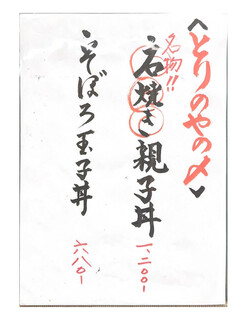 <とりのやの〆>
名物!!
石焼き親子丼
一、二〇〇-
そぼろ玉子丼
六八〇-